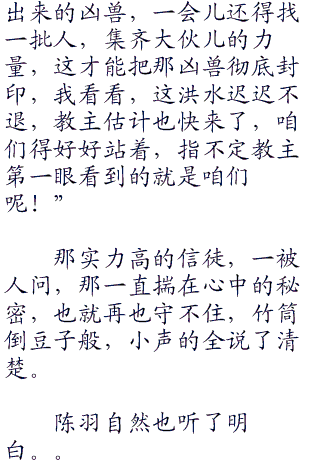 出来的凶兽，一会儿还得找
一批人，集齐大伙儿的力
量，这才能把那凶兽彻底封
印，我看看，这洪水迟迟不
退，教主估计也快来了，咱
们得好好站着，指不定教主
第一眼看到的就是咱们
呢！”
那实力高的信徒，一被
人问，那一直揣在心中的秘
密，也就再也守不住，竹筒
倒豆子般，小声的全说了清
楚。
陈羽自然也听了明
白。。